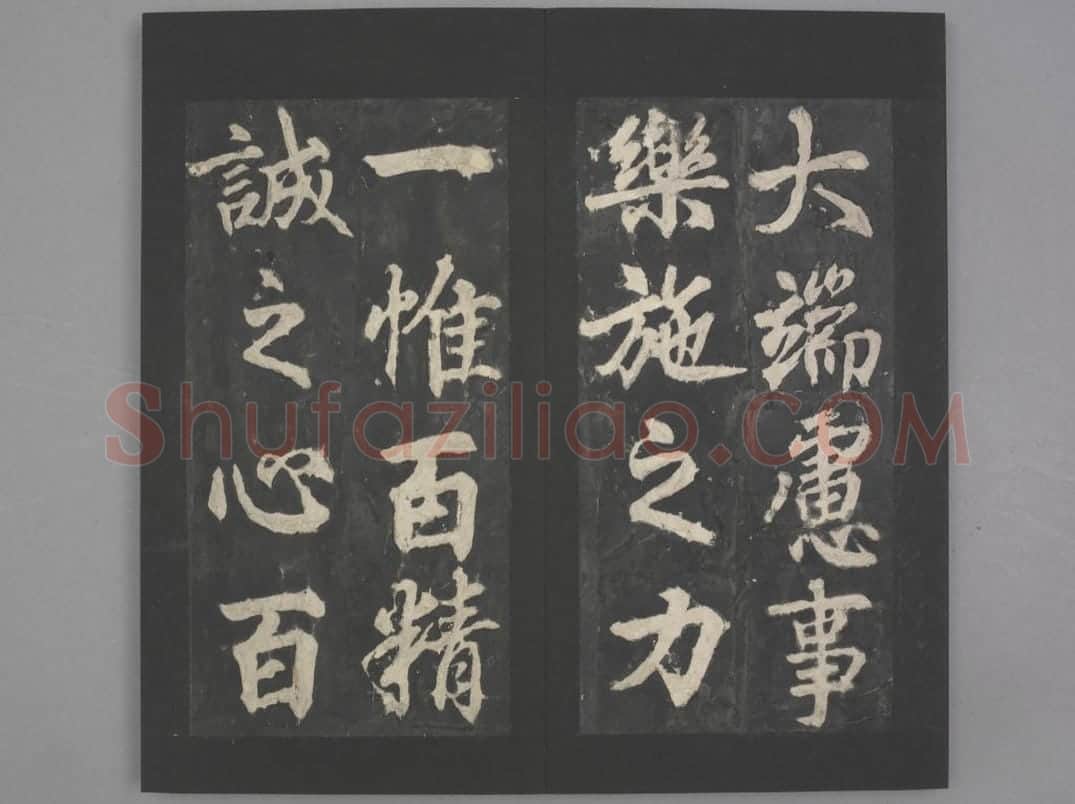 大端慮事
樂施之力
一惟百精
誠之心百
Shufaziliao.COM